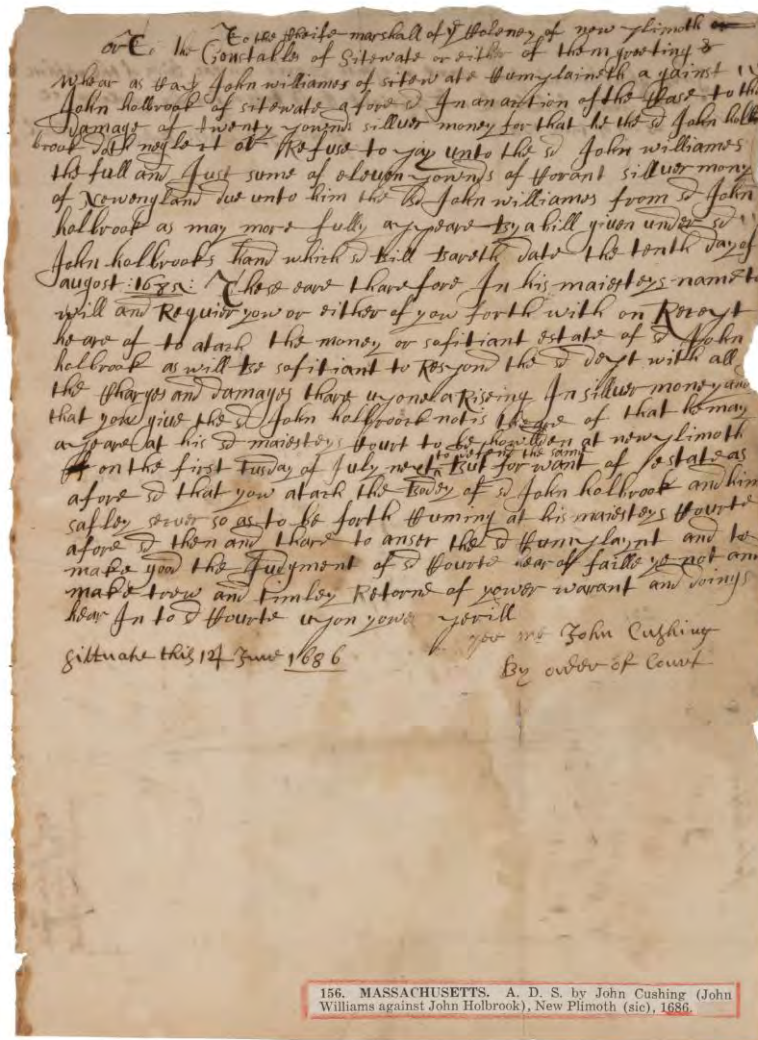 To the Cheife marshall of ye Coloney of new plimoth
or To the Constables of Sitewate or either of them greeting &
whear as Capt John williames of sitewate Complaineth against
John holbrook of sitewate afore sd In an action of the Case to the
Damage of twenty pownds sillver money for that he the sd John holl
brook doth neglect or Refuse to pay unto the sd John williames
the full and Just some of eleven pownds of Corant sillver mony
of Newengland due unto him the sd John williames from sd John
holbrook as may more fully appeare By a bill given under sd
John holbrooks hand which sd Bill Bareth date the tenth day of
august
These eare thare fore In his maiesteys name to
will and Requier yow or either of yow forth with on Receypt
heare of to atach the money or sofitiant estate of sd John
holbrook as will be sofitiant to Respond the sd dept with all
the Charges and damages thare upone a Riseing In sillver money and
that you give the sd John holbroock notis heare of that he may
apeare at his sd maiesteys Court to be howlden at new plimoth
on the first Tusday of July next to the same But for want of estate as
afore sd that you atach the Bodey of sd John holbrook and him
safley so as to be forth Cuming at his maiesteys Courte
afore sd then and thare to anser the sd Complaynt and to
make good the Judgment of sd Courte hear of faille ye not and
make trew and timley Retorne of yower warant and doings
hear In to sd Courte upon yower perill
per me John Cushing
Sittuate this 12 June 1686
By order of Court
156. MASSACHUSETTS. A. D. S. by John Cushing (John
Williams against John Holbrook), New Plimoth (sic), 1686.